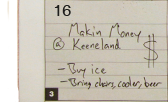 16
Makin Money
@ Keeneland $
- Buy ice
- Bring chairs, cooler, beer
3